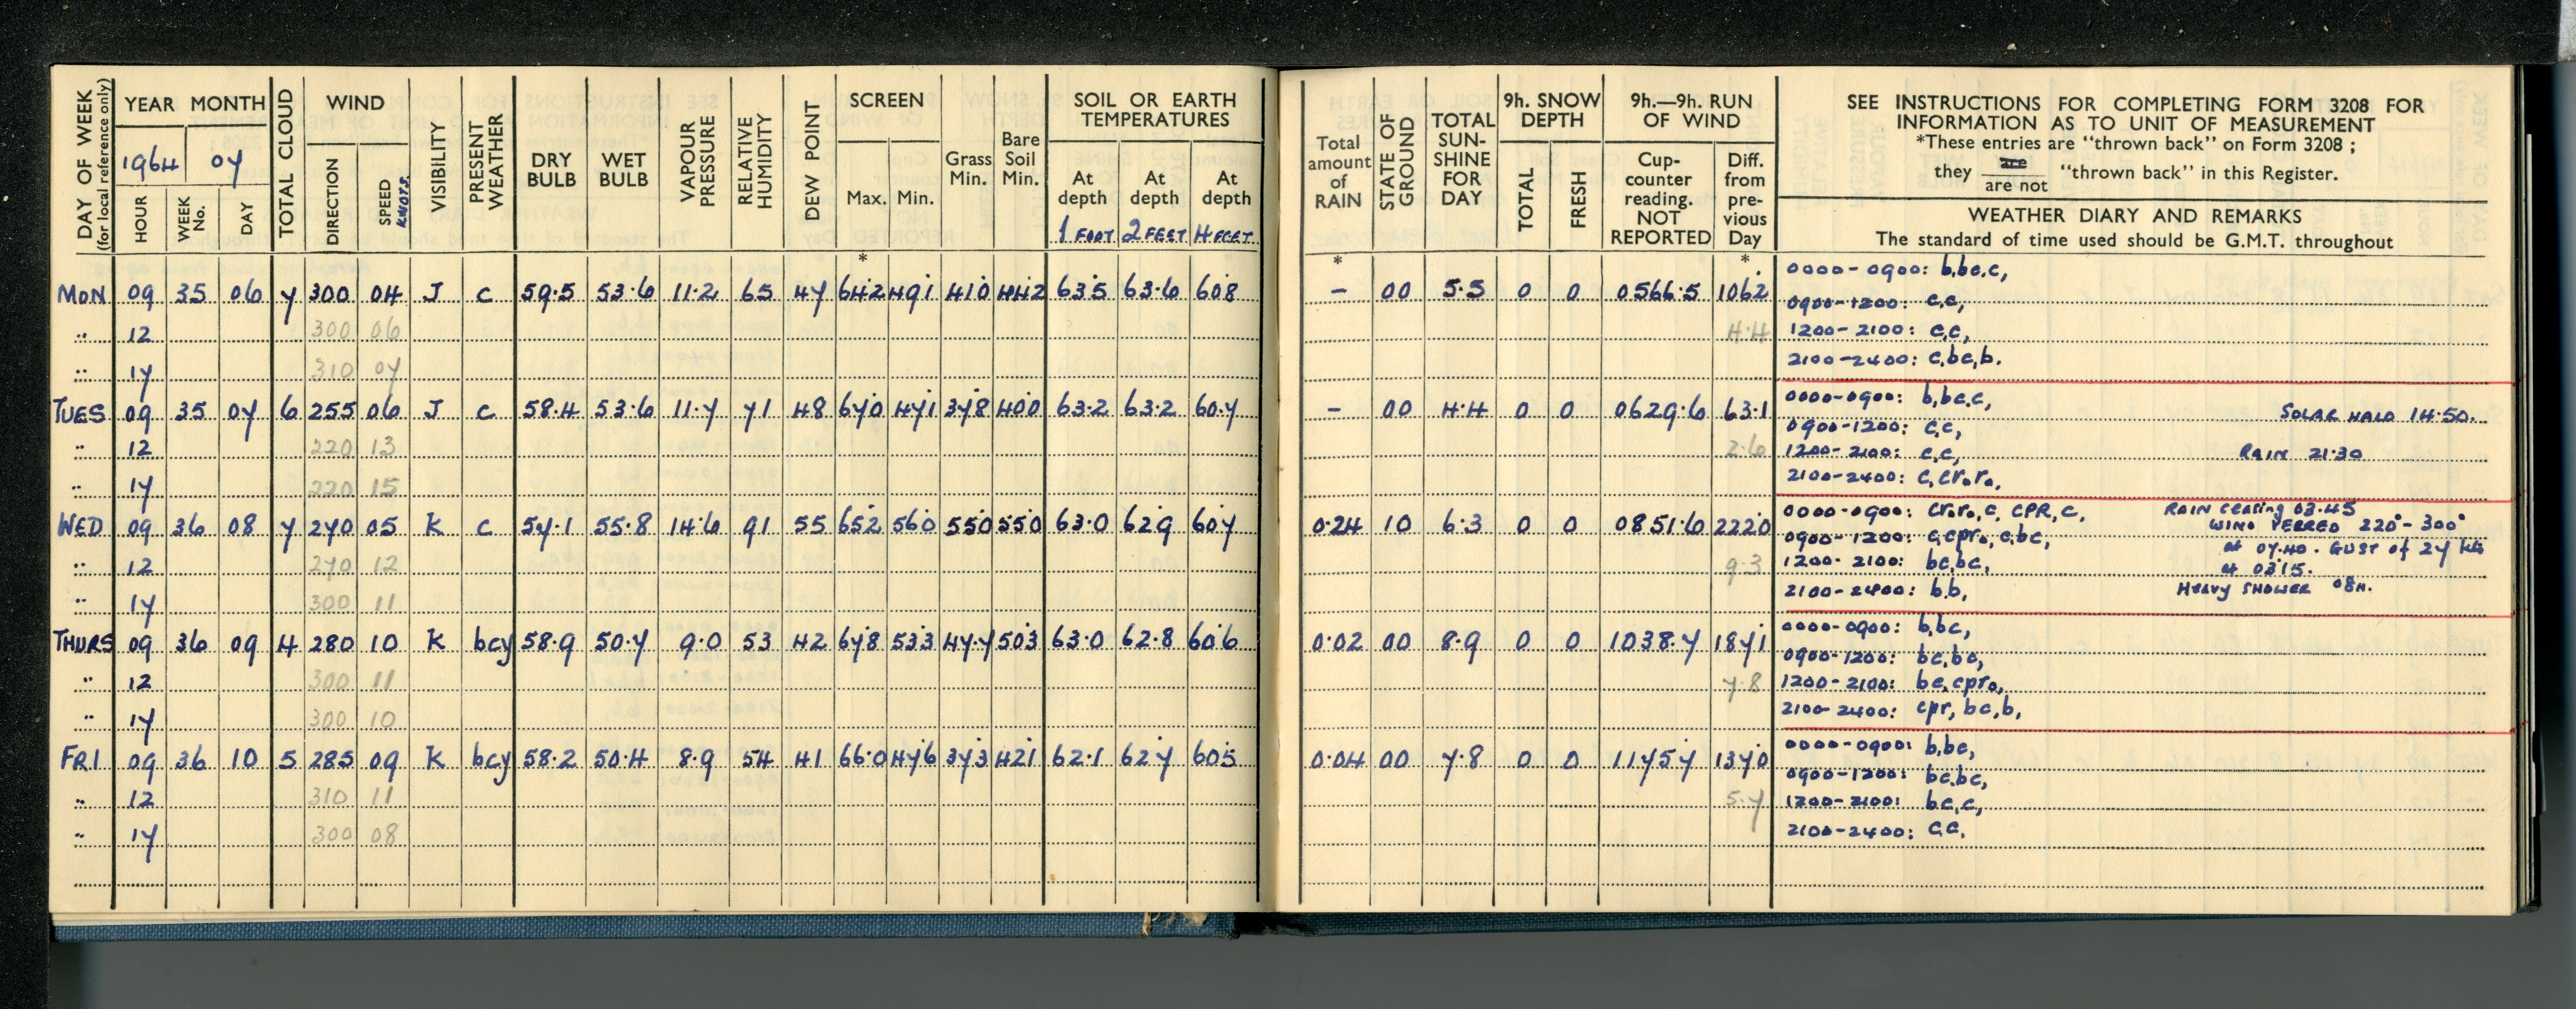 DAY OF WEEK (for local reference only)
YEAR MONTH
1964 07
HOUR WEEK No. DAY
TOTAL CLOUD
WIND
DIRECTION SPEED KNOTS.
VISIBILITY
PRESENT WEATHER
DRY BULB
WET BULB
VAPOUR PRESSURE
RELATIVE HUMIDITY
DEW POINT
SCREEN
Max. Min.
*
Grass Min.
Bare Soil Min.
SOIL OR EARTH TEMPERATURES
At depth At depth At depth
1 FOOT 2 FEET 4 FEET
Total amount of RAIN
*
STATE OF GROUND
TOTAL SUN-SHINE FOR DAY
9h. SNOW DEPTH
TOTAL FRESH
9h.—9h. RUN OF WIND
Cup-counter reading. NOT REPORTED
Diff. from pre-vious Day
*
SEE INSTRUCTIONS FOR COMPLETING FORM 3208 FOR
INFORMATION AS TO UNIT OF MEASUREMENT
*These entries are "thrown back" on Form 3208 ;
they are / are not "thrown back" in this Register.
WEATHER DIARY AND REMARKS
The standard of time used should be G.M.T. throughout
MON 09 35 06 7 300 04 J c 59.5 53.6 11.2 65 47 64.2 49.1 41.0 44.2 63.5 63.6 60.8 – 00 5.5 0 0 0566.5 106.2
0000-0900: b,bc,c,
0900-1200: c,c,
" 12 300 06 4.4
1200-2100: c,c,
2100-2400: c,bc,b.
" 17 310 07
TUES 09 35 07 6 255 06 J c 58.4 53.6 11.7 71 48 67.0 47.1 37.8 40.0 63.2 63.2 60.7 – 00 4.4 0 0 0629.6 63.1
0000-0900: b,bc,c, SOLAR HALO 14.50.
0900-1200: c,c,
" 12 220 13 2.6
1200-2100: c,c, RAIN 21.30
2100-2400: c,cr₀r₀,
" 17 220 15
WED 09 36 08 7 270 05 K c 57.1 55.8 14.6 91 55 65.2 56.0 55.0 55.0 63.0 62.9 60.7 0.24 10 6.3 0 0 0851.6 222.0
0000-0900: cr₀r₀,c, CPR,c, RAIN ceasing 03.45
WIND VEERED 220°-300°
0900-1200: c,cpr₀,c,bc, at 07.40. GUST of 27 kts
" 12 270 12 9.3
1200-2100: bc,bc, at 0315.
2100-2400: b,b, HEAVY SHOWER 08H.
" 17 300 11
THURS 09 36 09 4 280 10 K bcy 58.9 50.7 9.0 53 42 67.8 53.3 47.7 50.3 63.0 62.8 60.6 0.02 00 8.9 0 0 1038.7 187.1
0000-0900: b,bc,
0900-1200: bc,bc,
" 12 300 11 7.8
1200-2100: bc,cpr₀,
2100-2400: cpr, bc,b,
" 17 300 10
FRI 09 36 10 5 285 09 K bcy 58.2 50.4 8.9 54 41 66.0 47.6 37.3 42.1 62.1 62.7 60.5 0.04 00 7.8 0 0 1175.7 137.0
0000-0900: b,bc,
0900-1200: bc,bc,
" 12 310 11 5.7
1200-2100: bc,c,
2100-2400: c,c,
" 17 300 08